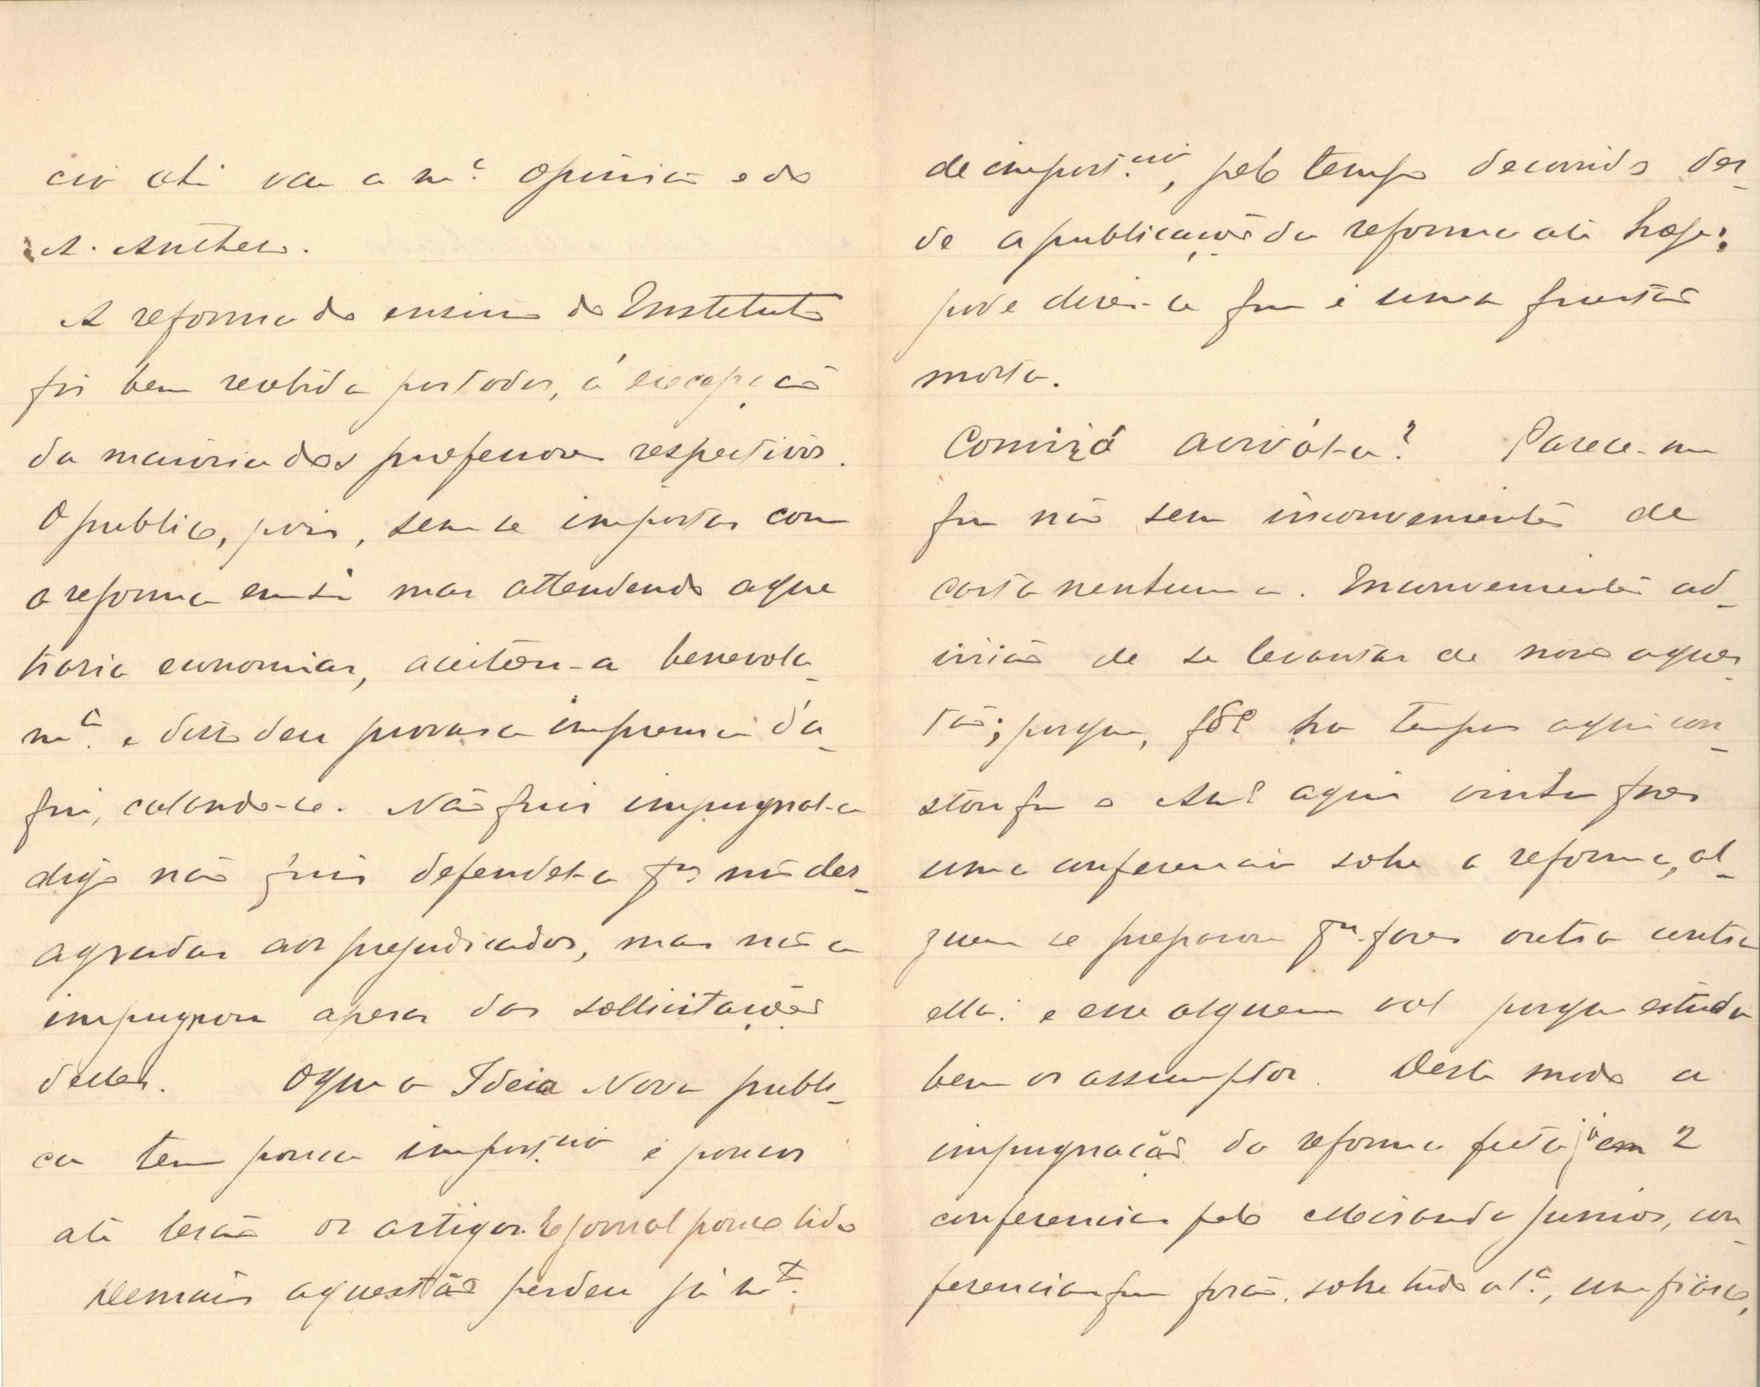 cio ahi vae a m.ª opinião e do
A. Anthero.
A reforma do ensino do Instituto
foi bem recebida por todos, á excepção
da maioria dos professores respectivos.
O publico, pois, sem se importar com
a reforma em si mas attendendo a que
trasia economias, aceitou-a benevola-
m.ᵉ e disto deu provas a imprensa d'a-
qui, calando-se. Não quis impugnal-a
digo não quis defendel-a p.ª não des-
agradar aos prejudicados, mas não a
impugnou apesar das sollicitações
delles. O que a Ideia Nova publi-
ca tem pouca import.cia e poucos
ahi lerão os artigos. É jornal pouco lido
Demais a questão perdeu já m.ᵗᵃ
de import.cia, pelo tempo decorrido des-
de a publicação da reforma até hoje;
pode dizer-se que é uma questão
morta.
Convirá avivál-a? Parece-me
que não sem inconvenientes de
casta nenhuma. Inconvenientes ad-
virião de se levantar de novo a ques-
tão; porque, q.do ha tempos aqui con-
stou que o aqui vinha fazer
uma conferencia sobre a reforma, al-
guem se preparou p.ª fazer outra contra
ella: e esse alguem val porque estuda
bem os assumptos. Deste modo a
impugnação da reforma feita já em 2
conferencias pelo Miranda Junior, con-
ferencias que forão, sobre tudo a 1.ª, um fiasco,